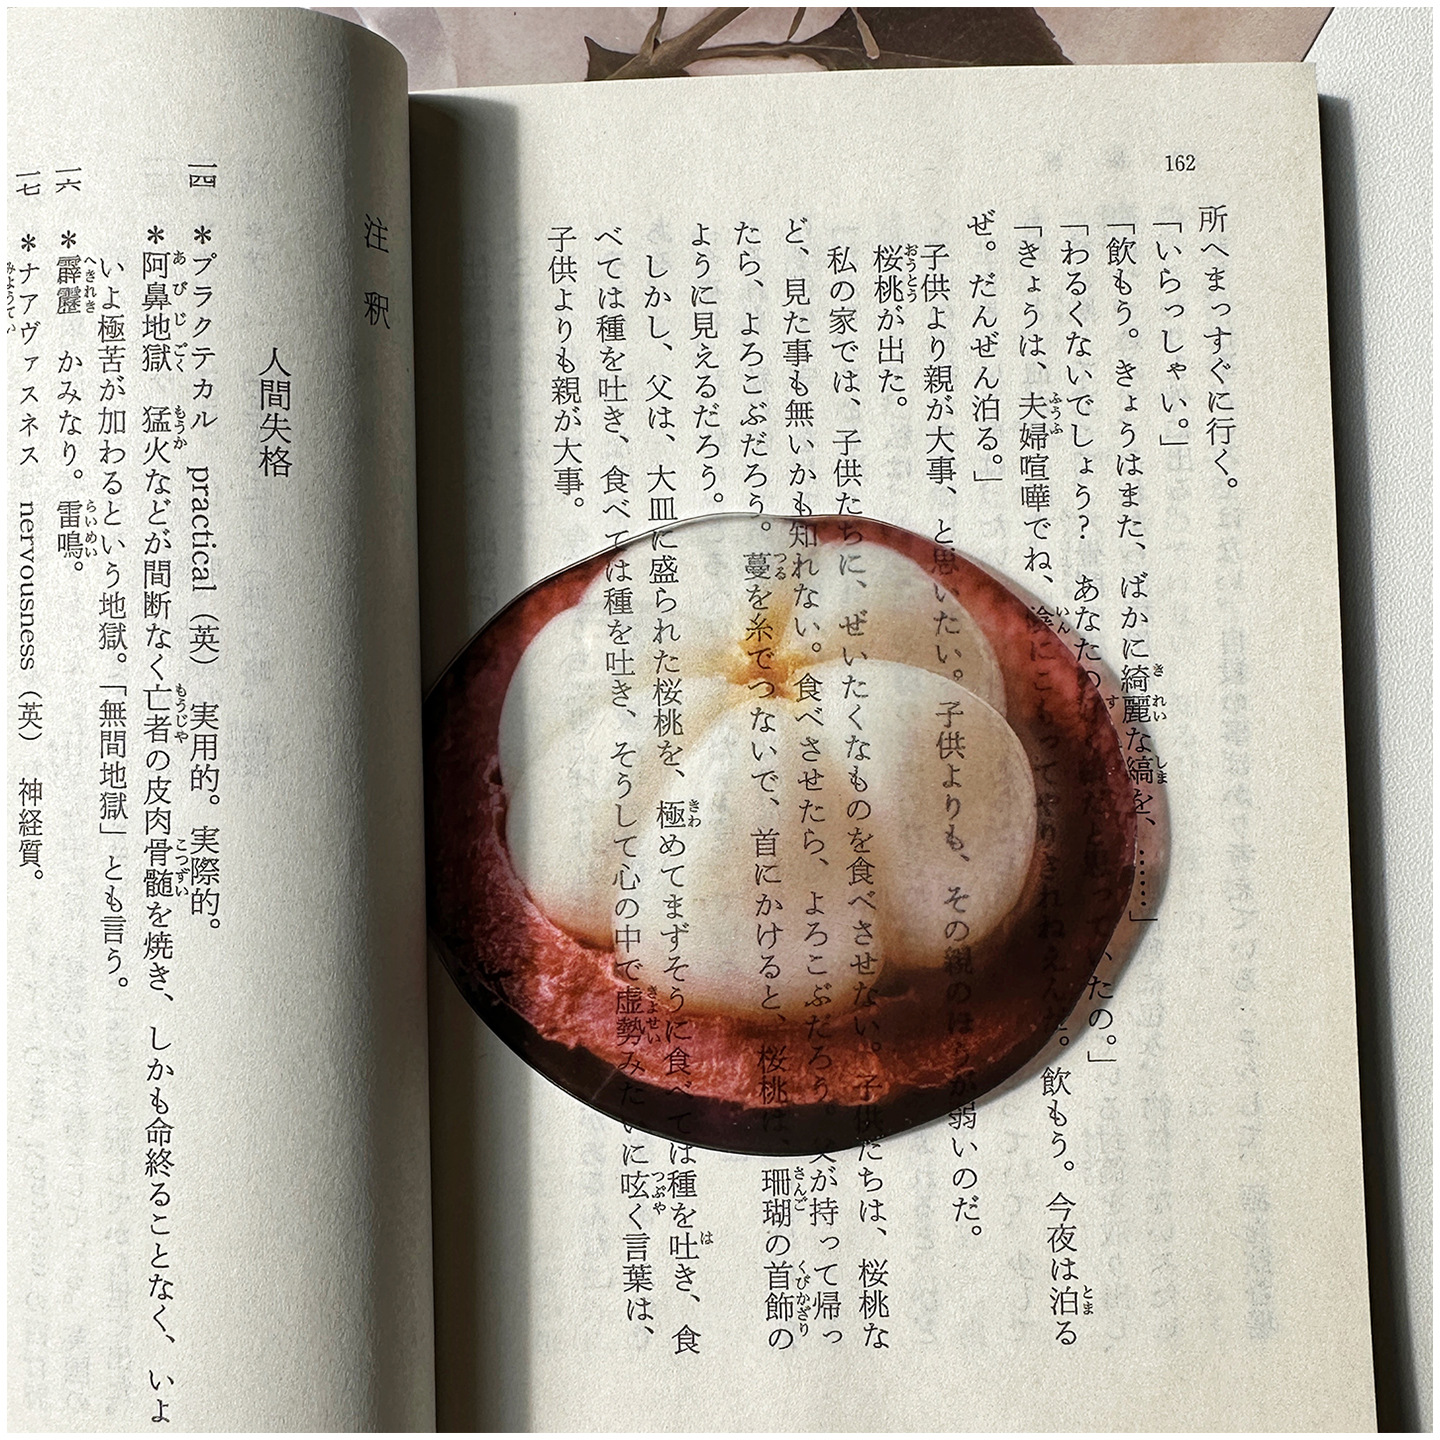 162
所へまっすぐに行く。
「いらっしゃい。」
「飲もう。きょうはまた、ばかに綺麗な縞を、……」
「わるくないでしょう？　あなたの好く縞だと思っていたの。」
「きょうは、夫婦喧嘩でね、陰にこもってやりきれねえんだ。飲もう。今夜は泊る
ぜ。だんぜん泊る。」
子供より親が大事、と思いたい。子供よりも、その親のほうが弱いのだ。
桜桃が出た。
私の家では、子供たちに、ぜいたくなものを食べさせない。子供たちは、桜桃な
ど、見た事も無いかも知れない。食べさせたら、よろこぶだろう。父が持って帰っ
たら、よろこぶだろう。蔓を糸でつないで、首にかけると、桜桃は、珊瑚の首飾の
ように見えるだろう。
しかし、父は、大皿に盛られた桜桃を、極めてまずそうに食べては種を吐き、食
べては種を吐き、食べては種を吐き、そうして心の中で虚勢みたいに呟く言葉は、
子供よりも親が大事。
注釈
人間失格
一四　＊プラクテカル　practical（英）　実用的。実際的。
＊阿鼻地獄　猛火などが間断なく亡者の皮肉骨髄を焼き、しかも命終ることなく、いよ
いよ極苦が加わるという地獄。「無間地獄」とも言う。
一六　＊霹靂　かみなり。雷鳴。
一七　＊ナアヴァスネス　nervousness（英）　神経質。